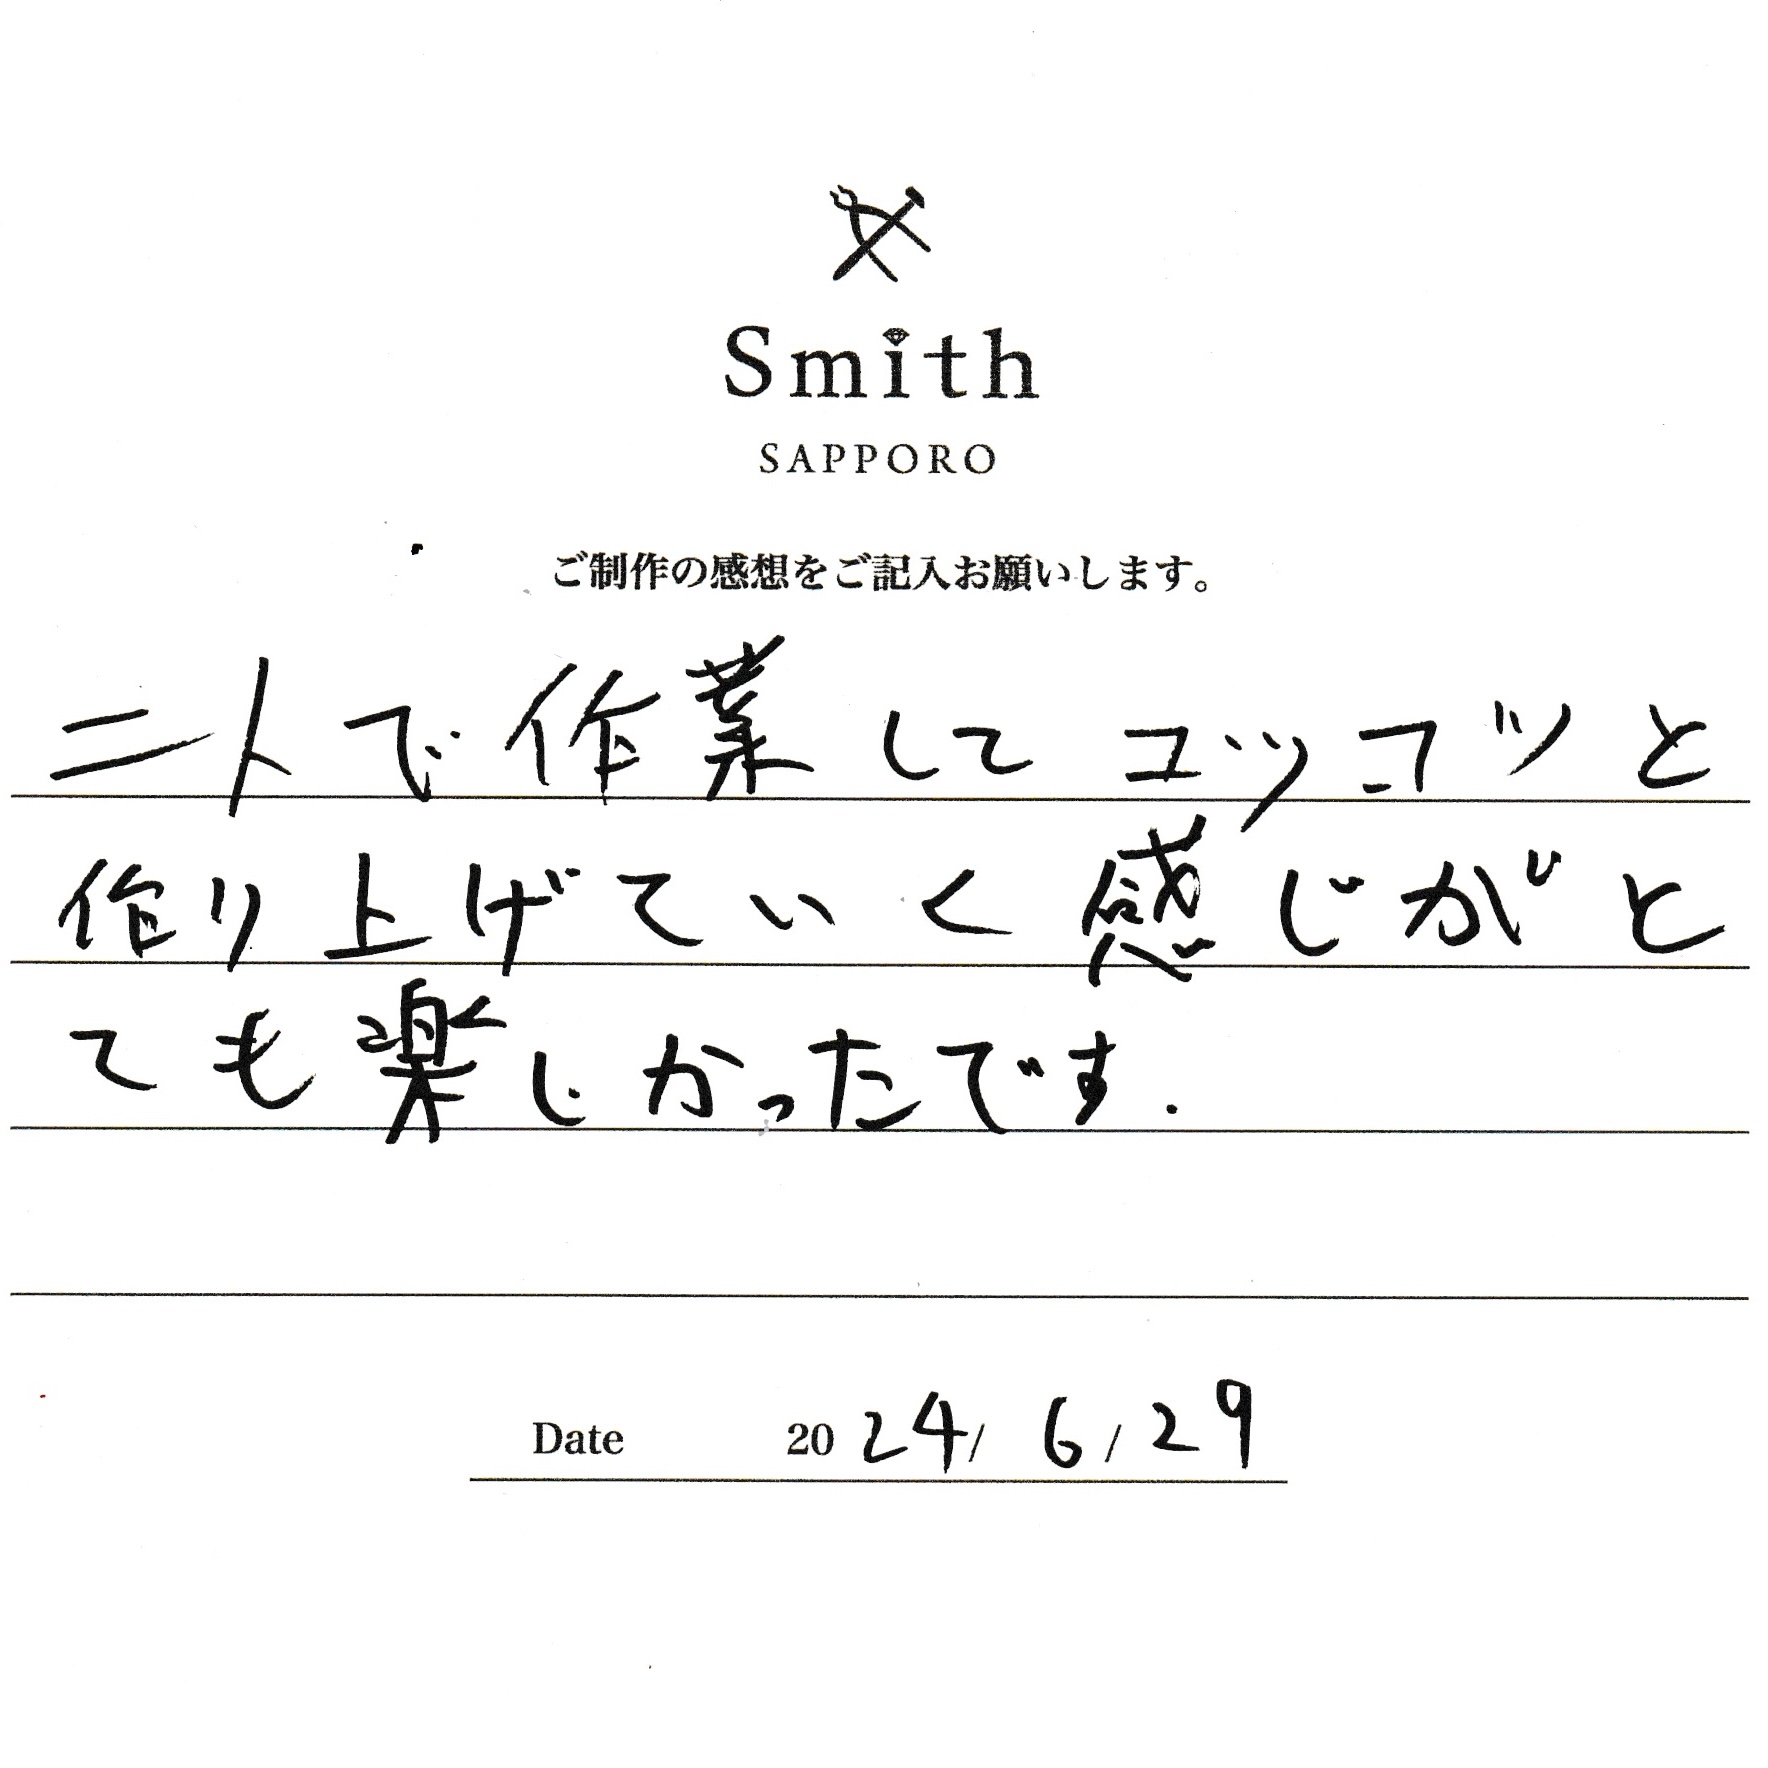 Smith
SAPPORO
ご制作の感想をご記入お願いします。
二人で作業してコツコツと
作り上げていく感じがと
ても楽しかったです.
Date 2024/6/29